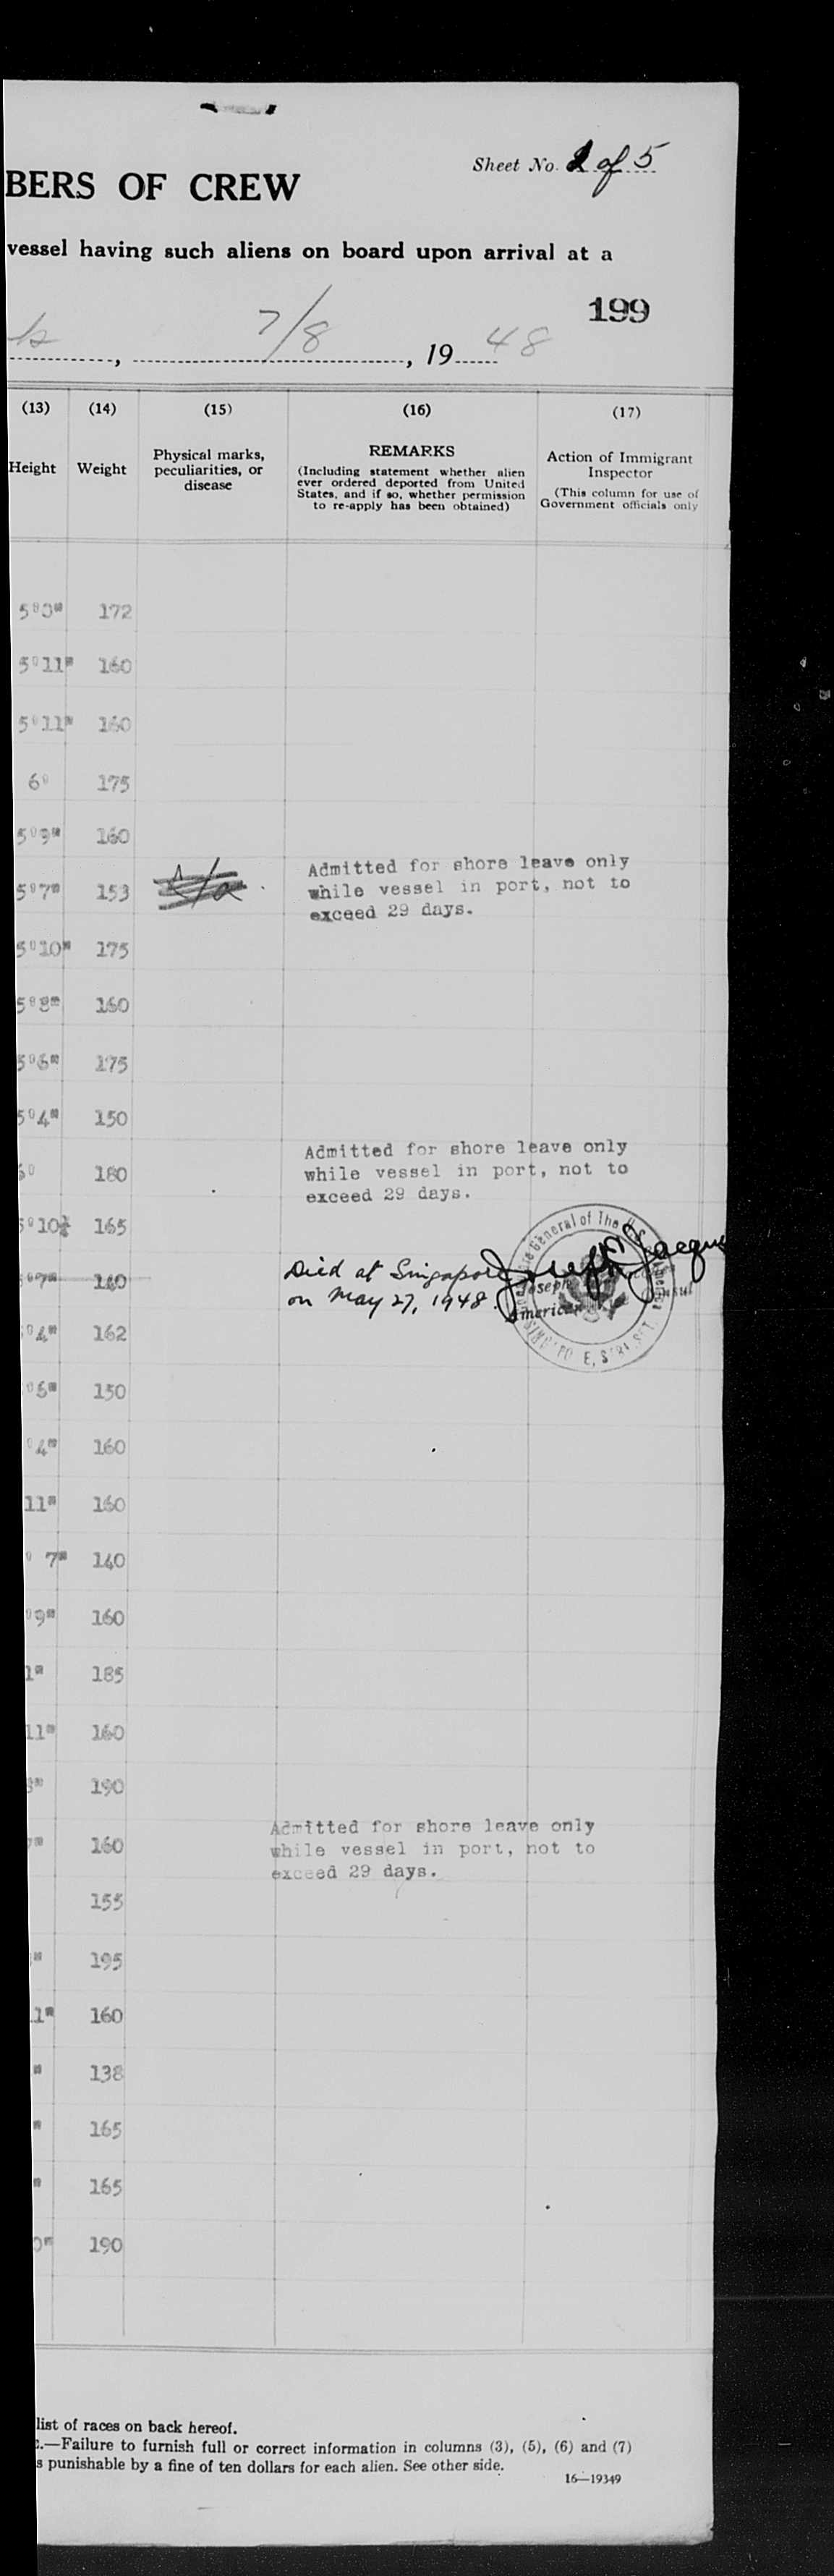 Sheet No. 2 of 5
BERS OF CREW
vessel having such aliens on board upon arrival at a
199
7/8, 19 48
(13) (14) (15) (16) (17)
Height Weight Physical marks, peculiarities, or disease REMARKS (Including statement whether alien ever ordered deported from United States, and if so, whether permission to re-apply has been obtained) Action of Immigrant Inspector (This column for use of Government officials only
172
5'11" 160
5'11" 160
6' 175
5'9" 160
Admitted for shore leave only
5'7" 153 while vessel in port, not to
exceed 29 days.
5'10" 175
5'8" 160
5'6" 175
5'4" 150
Admitted for shore leave only
180 while vessel in port, not to
exceed 29 days.
165
Died at Singapore
140
on May 27, 1948.
Joseph
American
4" 162
150
4" 160
11" 160
7" 140
9" 160
1" 185
11" 160
190
Admitted for shore leave only
160 while vessel in port, not to
exceed 29 days.
155
195
1" 160
138
165
165
190
list of races on back hereof.
.—Failure to furnish full or correct information in columns (3), (5), (6) and (7)
s punishable by a fine of ten dollars for each alien. See other side.
16—19349